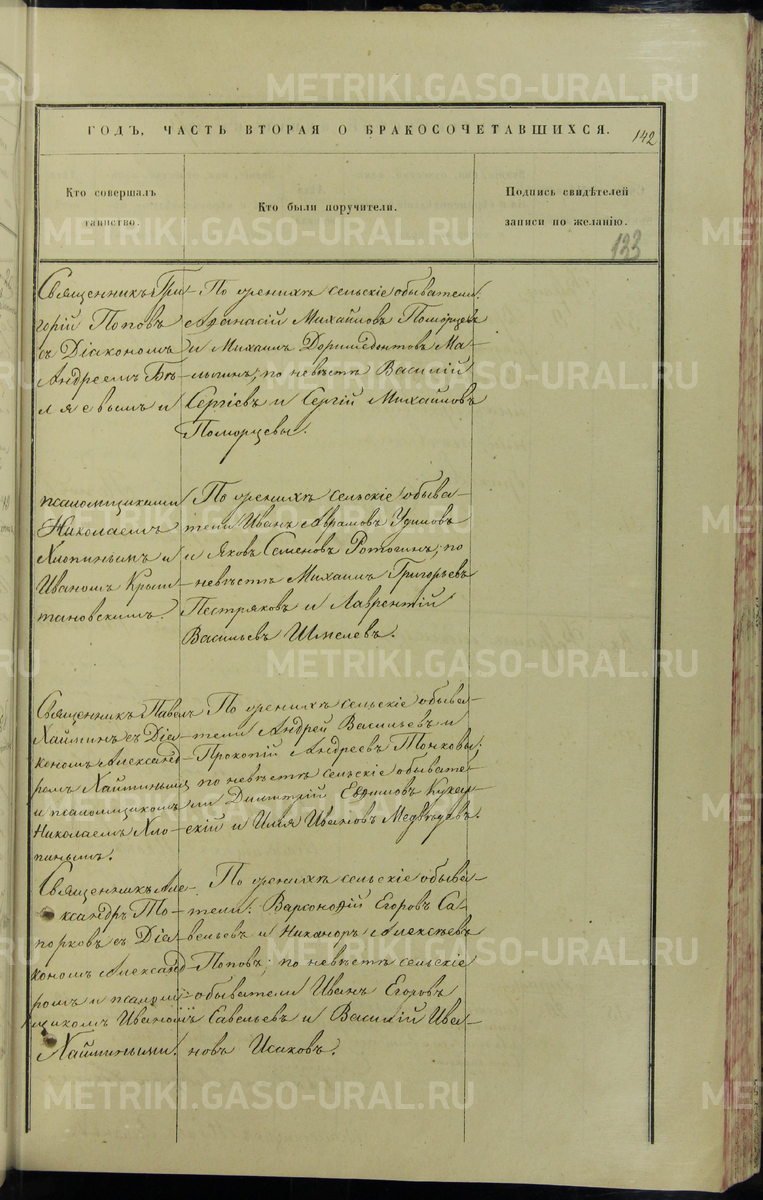 METRIKI.GASO-URAL.RU
ГОДЪ, ЧАСТЬ ВТОРАЯ О БРАКОСОЧЕТАВШИХСЯ.
142
Кто совершалъ
таинство.
Кто были поручители.
Подпись свидѣтелей
записи по желанію.
133
Священникъ Гри-
горій Поповъ
съ Діакономъ
Андреемъ Бѣ-
ляевымъ и
По женихѣ сельскіе обыватели:
Афанасій Михайловъ Поморцевъ
и Михаилъ Доримедонтовъ Ма-
лыгинъ; по невѣстѣ Василій
Сергіевъ и Сергій Михайловъ
Поморцевы.
псаломщиками
Николаемъ
Хлопинымъ и
Иваномъ Крыш-
тановскимъ.
По женихѣ сельскіе обыва-
тели Иванъ Аврамовъ Удиловъ
и Яковъ Семеновъ; по
невѣстѣ Михаилъ Григорьевъ
Пестряковъ и Лаврентій
Васильевъ Шмелевъ.
Священникъ Павелъ
Хайминъ съ Діа-
кономъ Александ-
ромъ Хайминымъ
и псаломщикомъ
Николаемъ Хло-
пинымъ.
По женихѣ сельскіе обыва-
тели Андрей Васильевъ и
Прокопій Андреевъ Тонковы;
по невѣстѣ сельскіе обывате-
ли Димитрій Евфимовъ
и Илья Ивановъ Медвѣдевъ.
Священникъ Але-
ксандръ То-
порковъ съ Діа-
кономъ Александ-
ромъ и псалом-
щикомъ Иваномъ
Хаймиными.
По женихѣ сельскіе обыва-
тели: Варсонофій Егоровъ Са-
вельевъ и Никаноръ Алексѣевъ
Поповъ; по невѣстѣ сельскіе
обыватели Иванъ Егоровъ
Савельевъ и Василій Ива-
новъ Исаковъ.